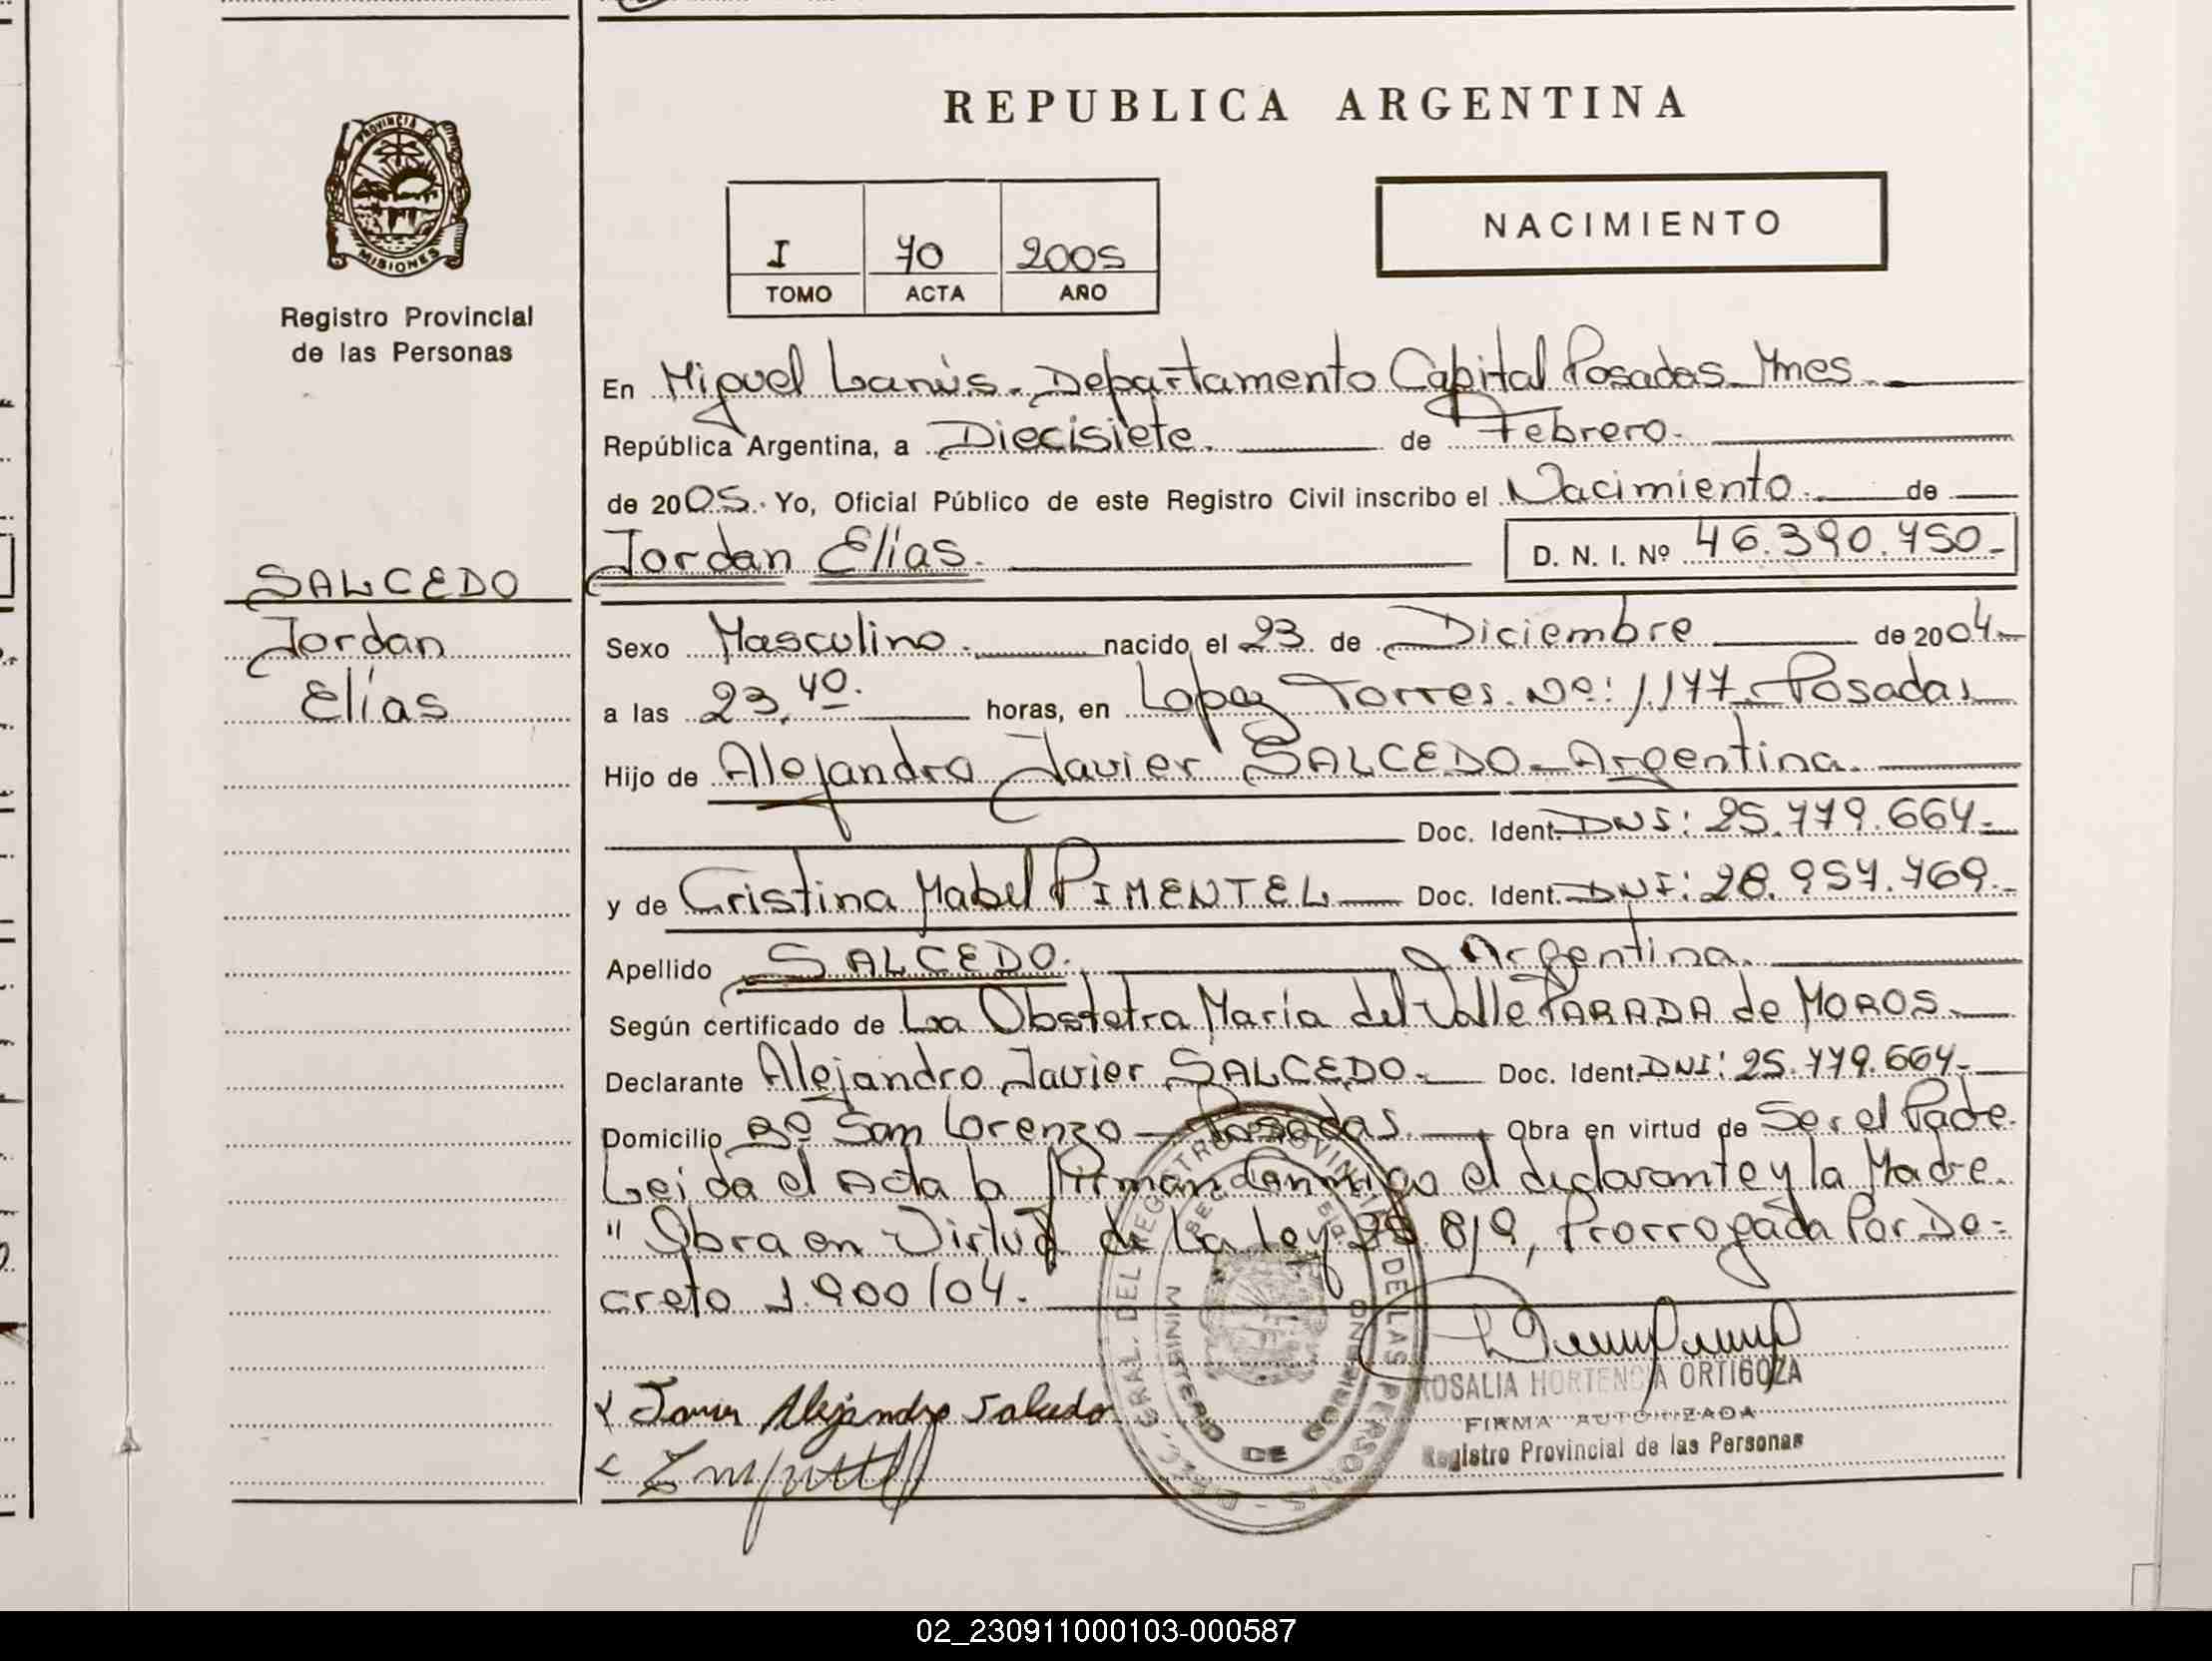 REPUBLICA ARGENTINA
PROVINCIA DE MISIONES
Registro Provincial
de las Personas
I 70 2005
TOMO ACTA AÑO
NACIMIENTO
En Miguel Lanús - Departamento Capital Posadas Mnes.
República Argentina, a Diecisiete. de Febrero.
de 2005. Yo, Oficial Público de este Registro Civil inscribo el Nacimiento. de
Jordan Elías. D. N. I. Nº 46.390.750-
SALCEDO
Jordan
Elías
Sexo Masculino. nacido el 23 de Diciembre de 2004.
a las 23,40. horas, en Lopez Torres. Nº: 1.177 - Posadas
Hijo de Alejandro Javier SALCEDO - Argentina.
Doc. Ident. DNI: 25.779.664.
y de Cristina Mabel PIMENTEL Doc. Ident. DNI: 28.957.769.
Apellido SALCEDO. Argentina.
Según certificado de La Obstetra María del Valle PARADA de MOROS.
Declarante Alejandro Javier SALCEDO. Doc. Ident. DNI: 25.779.664.
Domicilio Bº San Lorenzo - Posadas. Obra en virtud de Ser el Padre.
Leida el Acta la firman conmigo el declarante y la Madre.
"Obra en Virtud de La Ley 25 819, Prorrogada Por De=
creto 1.900/04.
DIREC. GRAL. DEL REGISTRO PROVINCIAL DE LAS PERSONAS
MINISTERIO DE GOBIERNO
ROSALIA HORTENCIA ORTIGOZA
FIRMA AUTORIZADA
Registro Provincial de las Personas
Javier Alejandro Salcedo
02_230911000103-000587